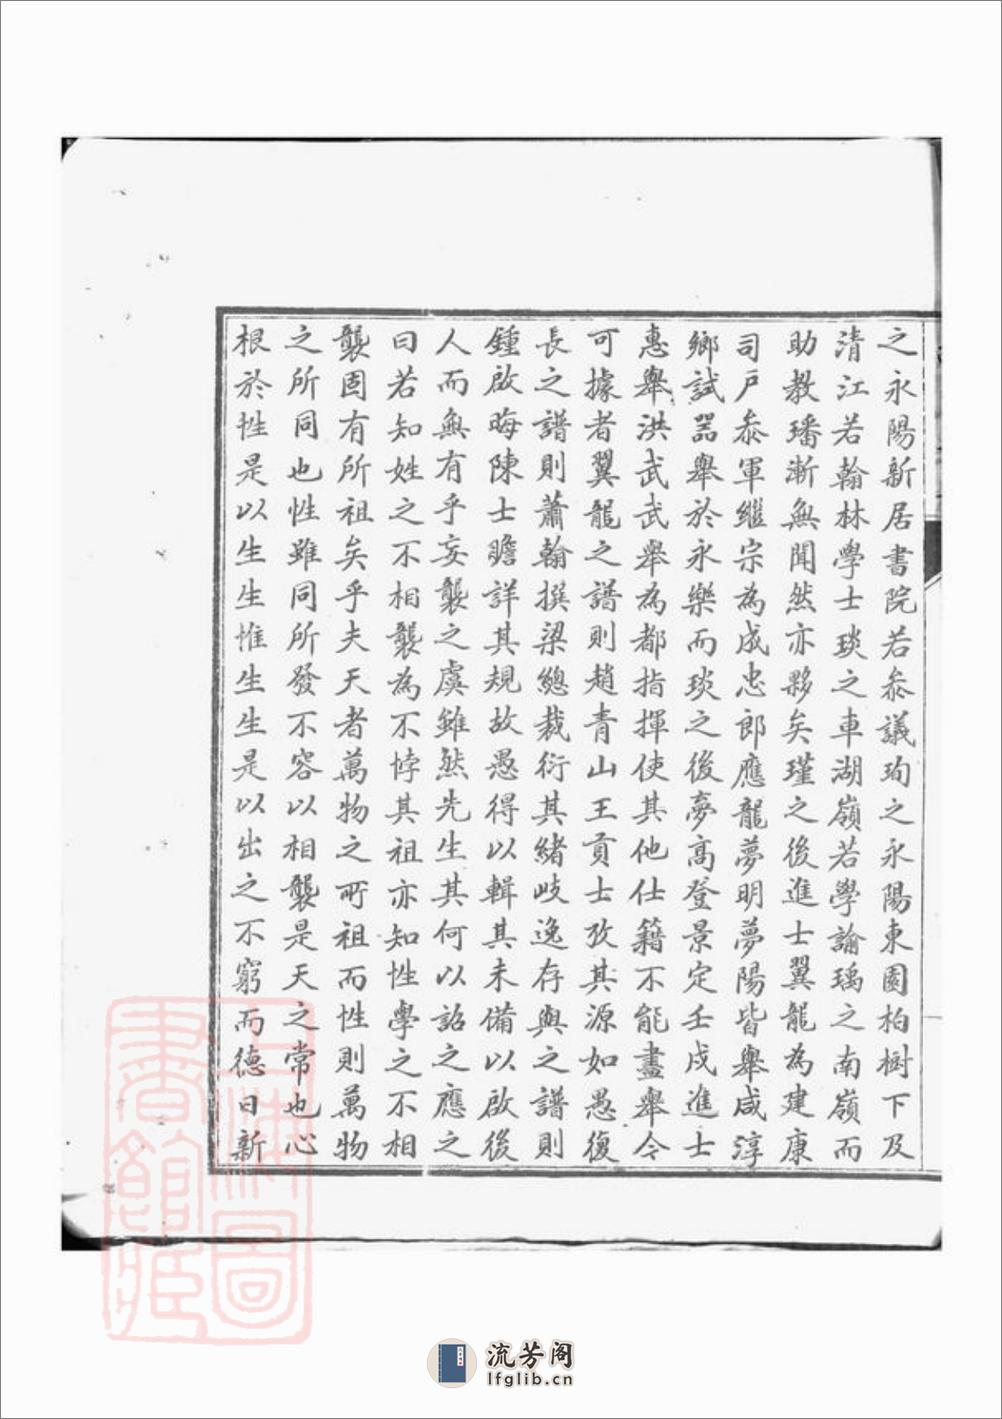 之永陽新居書院若叅議珣之永陽東園柏樹下及
清江若翰林學士琰之車湖嶺若學諭瑀之南嶺而
助教璠漸無聞然亦夥矣瑾之後進士翼龍為建康
司戶叅軍繼宗為成忠郎應龍夢明夢陽皆舉咸淳
鄉試器舉於永樂而琰之後夢高登景定壬戌進士
惠舉洪武武舉為都指揮使其他仕籍不能盡舉今
可據者翼龍之譜則趙青山王貢士孜其源如愚復
長之譜則蕭翰撰梁總裁衍其緒岐逸存與之譜則
鍾啟晦陳士瞻詳其規故愚得以輯其未備以啟後
人而無有乎妄襲之虞雖然先生其何以詔之應之
曰若知姓之不相襲為不悖其祖亦知性學之不相
襲固有所祖矣乎夫天者萬物之所祖而性則萬物
之所同也性雖同所發不容以相襲是天之常也心
根於性是以生生惟生生是以出之不窮而德日新
上海圖
書館藏
流芳阁
lfglib.cn